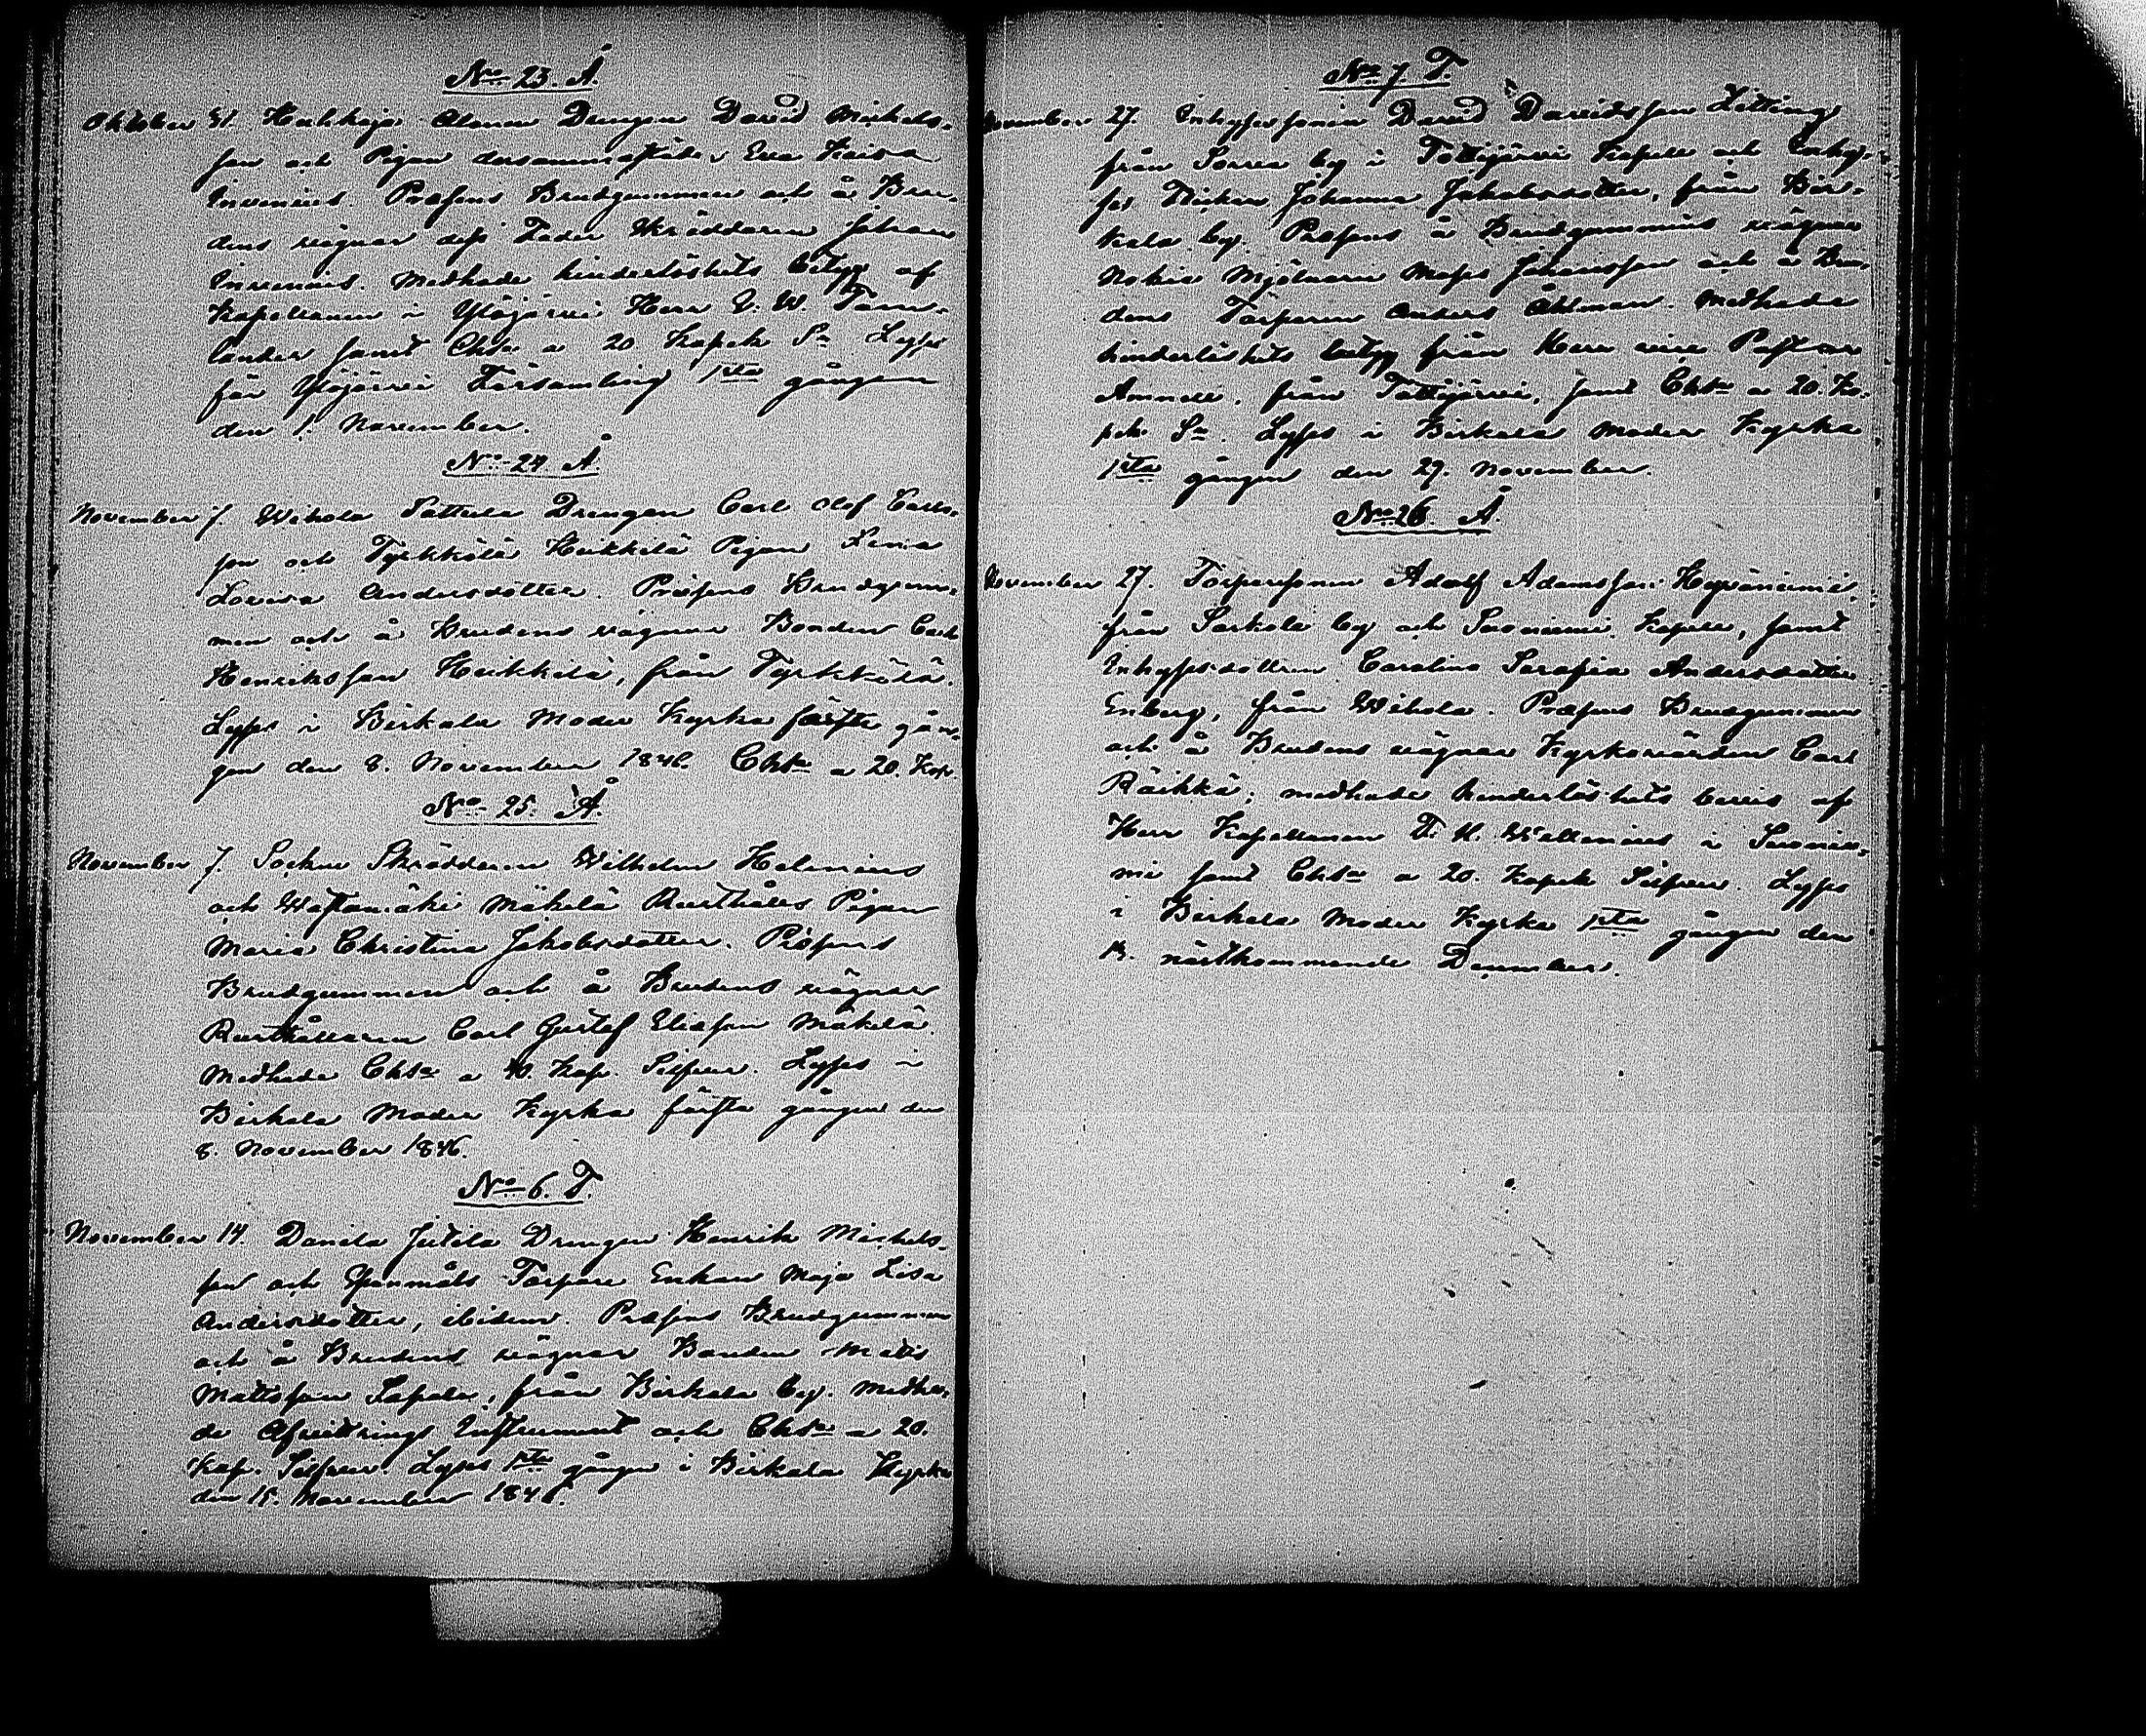 No 23. Å.
Oktober 31. Hulkkoja Drengen David Michels-
son och Pigan dersammastädes Eva Kaisa
Invenius. Præsens Brudgummen och å Bru-
dens vägnar dess Fader Skräddaren Johan
Invenius. Medhade hinderlöshets betyg af
Kapellanen i Ylöjärvi Herr G. W. Tam-
lander samt Chta a 20 Kopek Sr Lyses
för Ylöjärvi Församling 1sta gången
den 1. November.
No 24. Å.
November 7. Wihola Sattela Drengen Carl Olof Carls-
son och Tyrkkölä Heikkilä Pigan Lena
Lovisa Andersdotter. Præsens Brudgum-
men och å Brudens vägnar Bonden Carl
Henriksson Heikkilä, från Tyrkkölä.
Lyses i Birkala Moder Kyrka första gån-
gen den 8. November 1846. Chta a 20. Kop.
No 25. Å.
November 7. Sockne Skräddaren Wilhelm Helenius
och Wastamäki Mäkelä Rusthålls Pigan
Maria Christina Jakobsdotter. Præsens
Brudgummen och å Brudens vägnar
Rusthållaren Carl Gustaf Eliasson Mäkelä.
Medhade Chta a 40. Kop. Silfver. Lyses i
Birkala Moder Kyrka första gången den
8. November 1846.
No 6. T.
November 14. Daniela Jutila Drengen Henrik Michels-
son och Torpare Enkan Maja Lisa
Andersdotter, ibidem. Præsens Brudgummen
och å Brudens vägnar Bonden Matts
Mattsson Sapala, från Birkala by. Medha-
de Afvittrings Instrument och Chta a 20.
Kop. Silfver. Lyses 1sta gången i Birkala Kyrka
den 15. November 1846.
No 7. T.
November 27. Inhysessonen David Davidsson Litting
från Sorva by i Tottijärvi Kapell och Inhy-
ses Flickan Johanna Jakobsdotter, från Bir-
kala by. Præsens å Brudgummens vägnar
Nokia Mjölnaren Mases Johansson och å Bru-
dens Torparen Anders Öhlman. Medhade
hinderlöshets betyg från Herr vice Pastor
från Tottijärvi, samt Chta a 20. Ko-
pek Sr. Lyses i Birkala Moder Kyrka
1sta gången den 29. November.
No 26. Å.
November 27. Torparesonen Adolf Adamsson Hyvänieimi,
från Sarkola by och Suoniemi Kapell, samt
Inhysesdottren Carolina Serafia Andersdotter
Enberg, från Wihola. Præsens Brudgummen
och å Brudens vägnar Kyrkovärden Carl
Räikkä; medhade hinderlöshets bevis af
Herr Kapellanen F. H. Wallenius i Suonie-
mi samt Chta a 20. Kopek Silfver. Lyses
i Birkala Moder Kyrka 1sta gången den
13. nästkommande December.